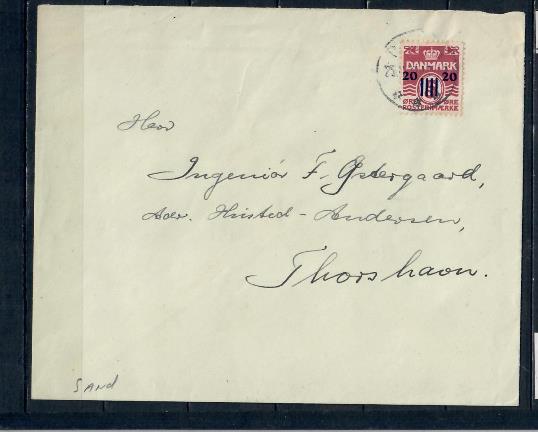 DANMARK
20 20
ØRE ØRE
POSTFRIMÆRKE
Herr
Ingeniør F. Østergaard,
Adr. Husted-Andersen,
Thorshavn.
SAND